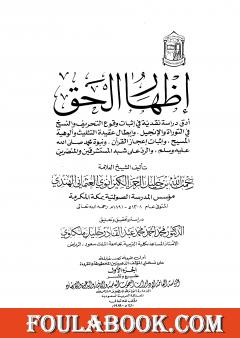 إظهار الحق
أدق دراسة نقدية في إثبات وقوع التحريف والنسخ
في التوراة والإنجيل، وإبطال عقيدة التثليث وألوهية
المسيح، وإثبات إعجاز القرآن، ونبوة محمد صلى الله
عليه وسلم، والرد على شبه المستشرقين والمنصرين
تأليف الشيخ العلامة
رحمة الله بن خليل الرحمن الكيرانوي العثماني الهندي
مؤسس المدرسة الصولتية بمكة المكرمة
المتوفى عام ١٣٠٨هـ - ١٨٩١م رحمه الله تعالى
دراسة وتحقيق وتعليق
الدكتور محمد أحمد محمد عبد القادر خليل ملكاوي
الأستاذ المساعد بكلية التربية بجامعة الملك سعود - الرياض
الجزء الأول
طبع ونشر
FOULABOOK.COM